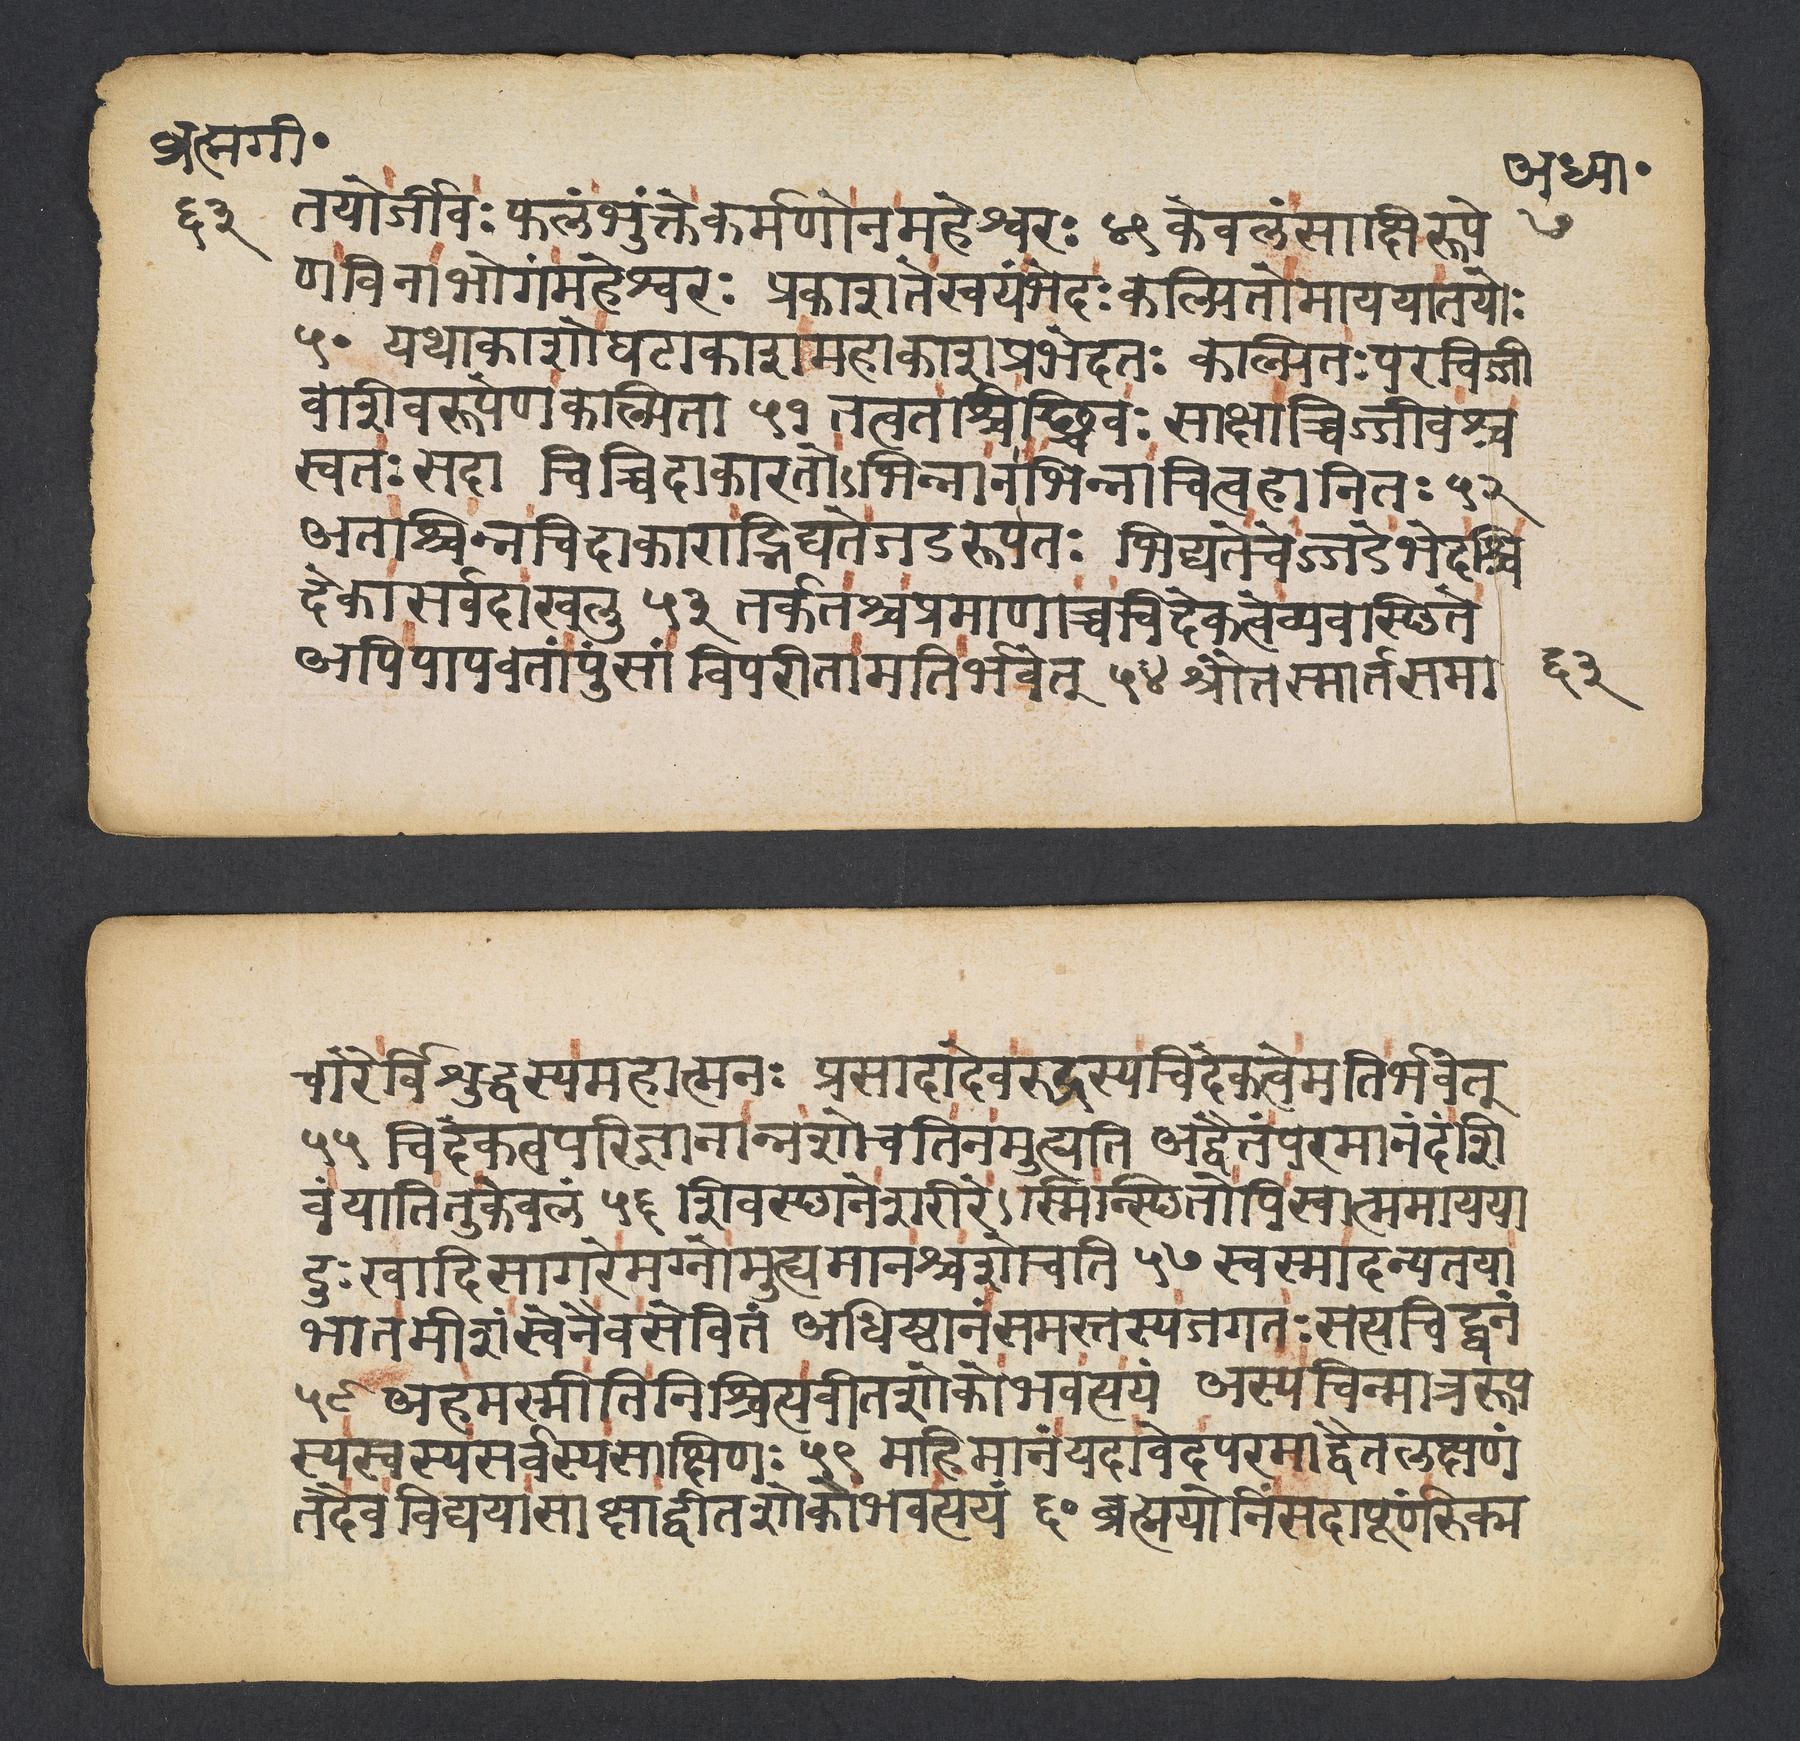 ब्रह्मगी॰
अध्या॰
६३
७
तयोर्जीवः फलंभुंक्तेकर्मणोनमहेश्वरः ४९ केवलंसाक्षिरूपे
णविनाभोगंमहेश्वरः प्रकाशतेस्वयंभेदः कल्पितोमाययातयोः
५० यथाकाशोघटाकाशमहाकाशप्रभेदतः कल्पितः परचिज्जी
वशिवरूपेणकल्पिता ५१ तत्वतश्चिच्छिवः साक्षाच्चिज्जीवश्च
स्वतः सदा चिच्चिदाकारतोऽभिन्नानभिन्नाचित्वहानितः ५२
अतश्चिन्नचिदाकाराद्भिद्यतेजडरूपतः भिद्यतेचेज्जडेभेदश्चि
देकासर्वदाखलु ५३ तर्कतश्चप्रमाणाच्चचिदेकत्वेव्यवस्छिते
अपिपापवतांपुंसां विपरीतामतिर्भवेत् ५४ श्रौतस्मार्तसमा
६३
चारैर्विशुद्धस्यमहात्मनः प्रसादादेवरुद्रस्यचिदेकत्वेमतिर्भवेत्
५५ चिदेकत्वपरिज्ञानान्नशोचतिनमुह्यति अद्वैतंपरमानंदंशि
वंयातितुकेवलं ५६ शिवस्छानेशरीरेऽस्मिन्स्छितोपिस्वात्ममायया
दुःखादिसागरेमग्नोमुह्यमानश्चशोचति ५७ स्वस्मादन्यतया
भातमीशंस्वेनैवसेवितं अधिष्ठानंसमस्तस्यजगतः सत्यचिद्घनं
५८ अहमस्मीतिनिश्चित्यवीतशोकोभवत्ययं अस्यचिन्मात्ररूप
स्यस्वस्यसर्वस्यसाक्षिणः ५९ महिमानंयदावेदपरमाद्वैतलक्षणं
तदैवविद्ययासाक्षाद्वीतशोकोभवत्ययं ६० ब्रह्मयोनिंसदापूर्णंरुक्म